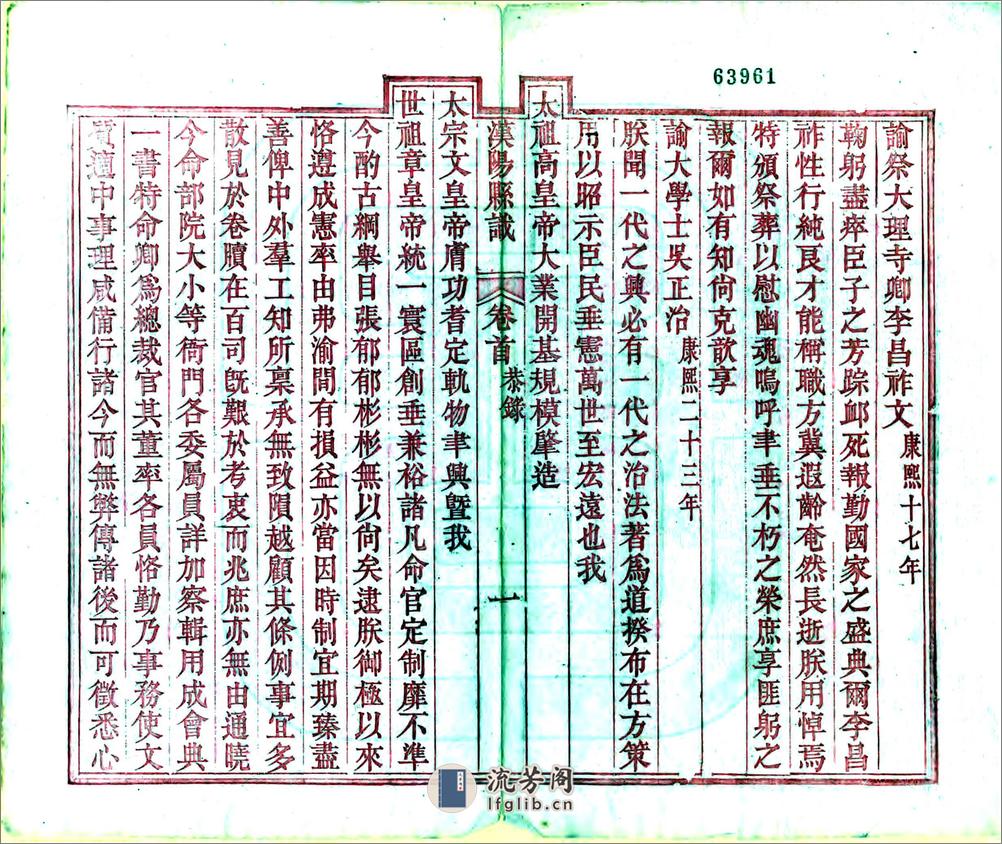 63961
諭祭大理寺卿李昌祚文 康熙十七年
鞠躬盡瘁臣子之芳踪卹死報勤國家之盛典爾李昌
祚性行純良才能稱職方冀遐齡奄然長逝朕用悼焉
特頒祭葬以慰幽魂嗚呼聿垂不朽之榮庶享匪躬之
報爾如有知尙克歆享
諭大學士吳正治 康熙二十三年
朕聞一代之興必有一代之治法著爲道揆布在方策
用以昭示臣民垂憲萬世至宏遠也我
太祖高皇帝大業開基規模肇造
漢陽縣識 卷首 恭錄 一
太宗文皇帝膚功耆定軌物聿興曁我
世祖章皇帝統一寰區創垂兼裕諸凡命官定制靡不準
今酌古綱舉目張郁郁彬彬無以尙矣逮朕御極以來
恪遵成憲率由弗渝間有損益亦當因時制宜期臻盡
善俾中外羣工知所稟承無致隕越顧其條例事宜多
散見於卷牘在百司旣艱於考衷而兆庶亦無由通曉
今命部院大小等衙門各委屬員詳加察輯用成會典
一書特命卿爲總裁官其董率各員恪勤乃事務使文
質適中事理咸備行諸今而無弊傳諸後而可徵悉心
流芳阁
lfglib.cn